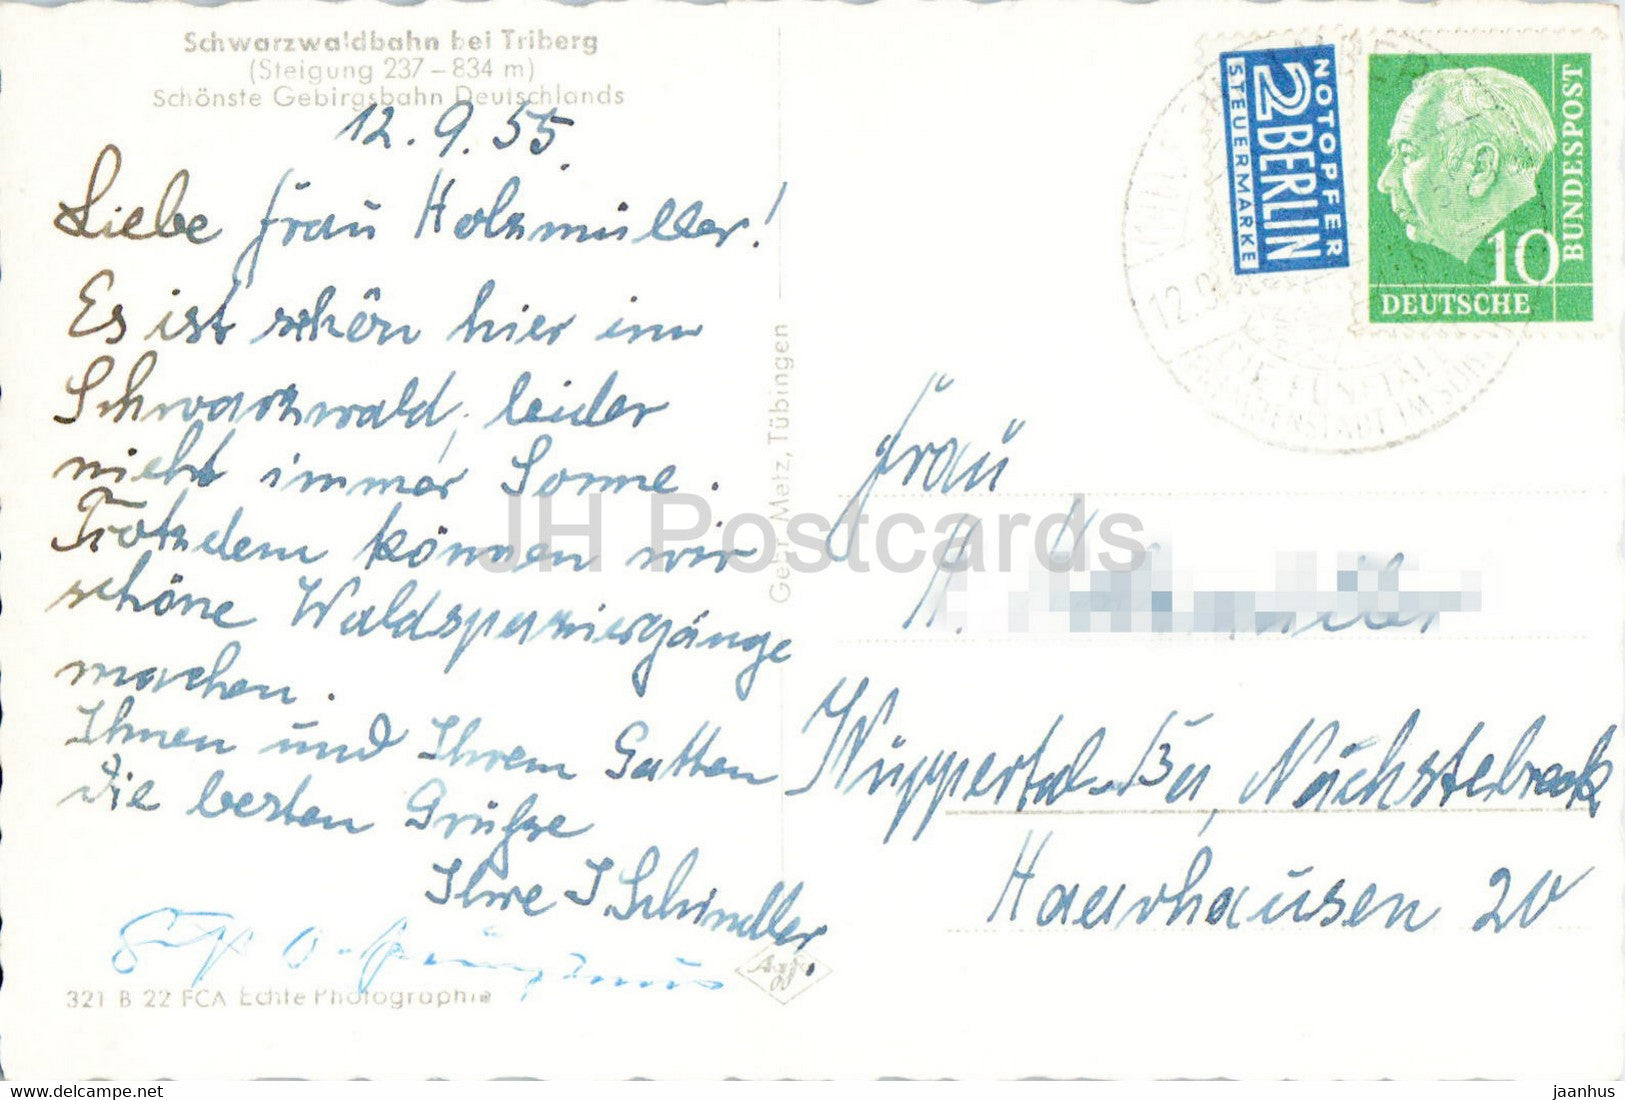 Schwarzwaldbahn bei Triberg
(Steigung 237 – 834 m)
Schönste Gebirgsbahn Deutschlands
12.9.55.
Liebe Frau Holzmüller!
Es ist schön hier im
Schwarzwald, leider
nicht immer Sonne.
Trotzdem können wir
schöne Waldspaziergänge
machen.
Ihnen und Ihrem Gatten
die besten Grüße
Ihre I Schindler
321 B 22 FCA Echte Photographie
Agfa
Gebr. Metz, Tübingen
NOTOPFER
2 BERLIN
STEUERMARKE
10
DEUTSCHE
BUNDESPOST
12.9
Frau
H.
Wuppertal-Ba, Nächstebreck
Haarhausen 20
JH Postcards
https://www.delcampe.net
jaanhus